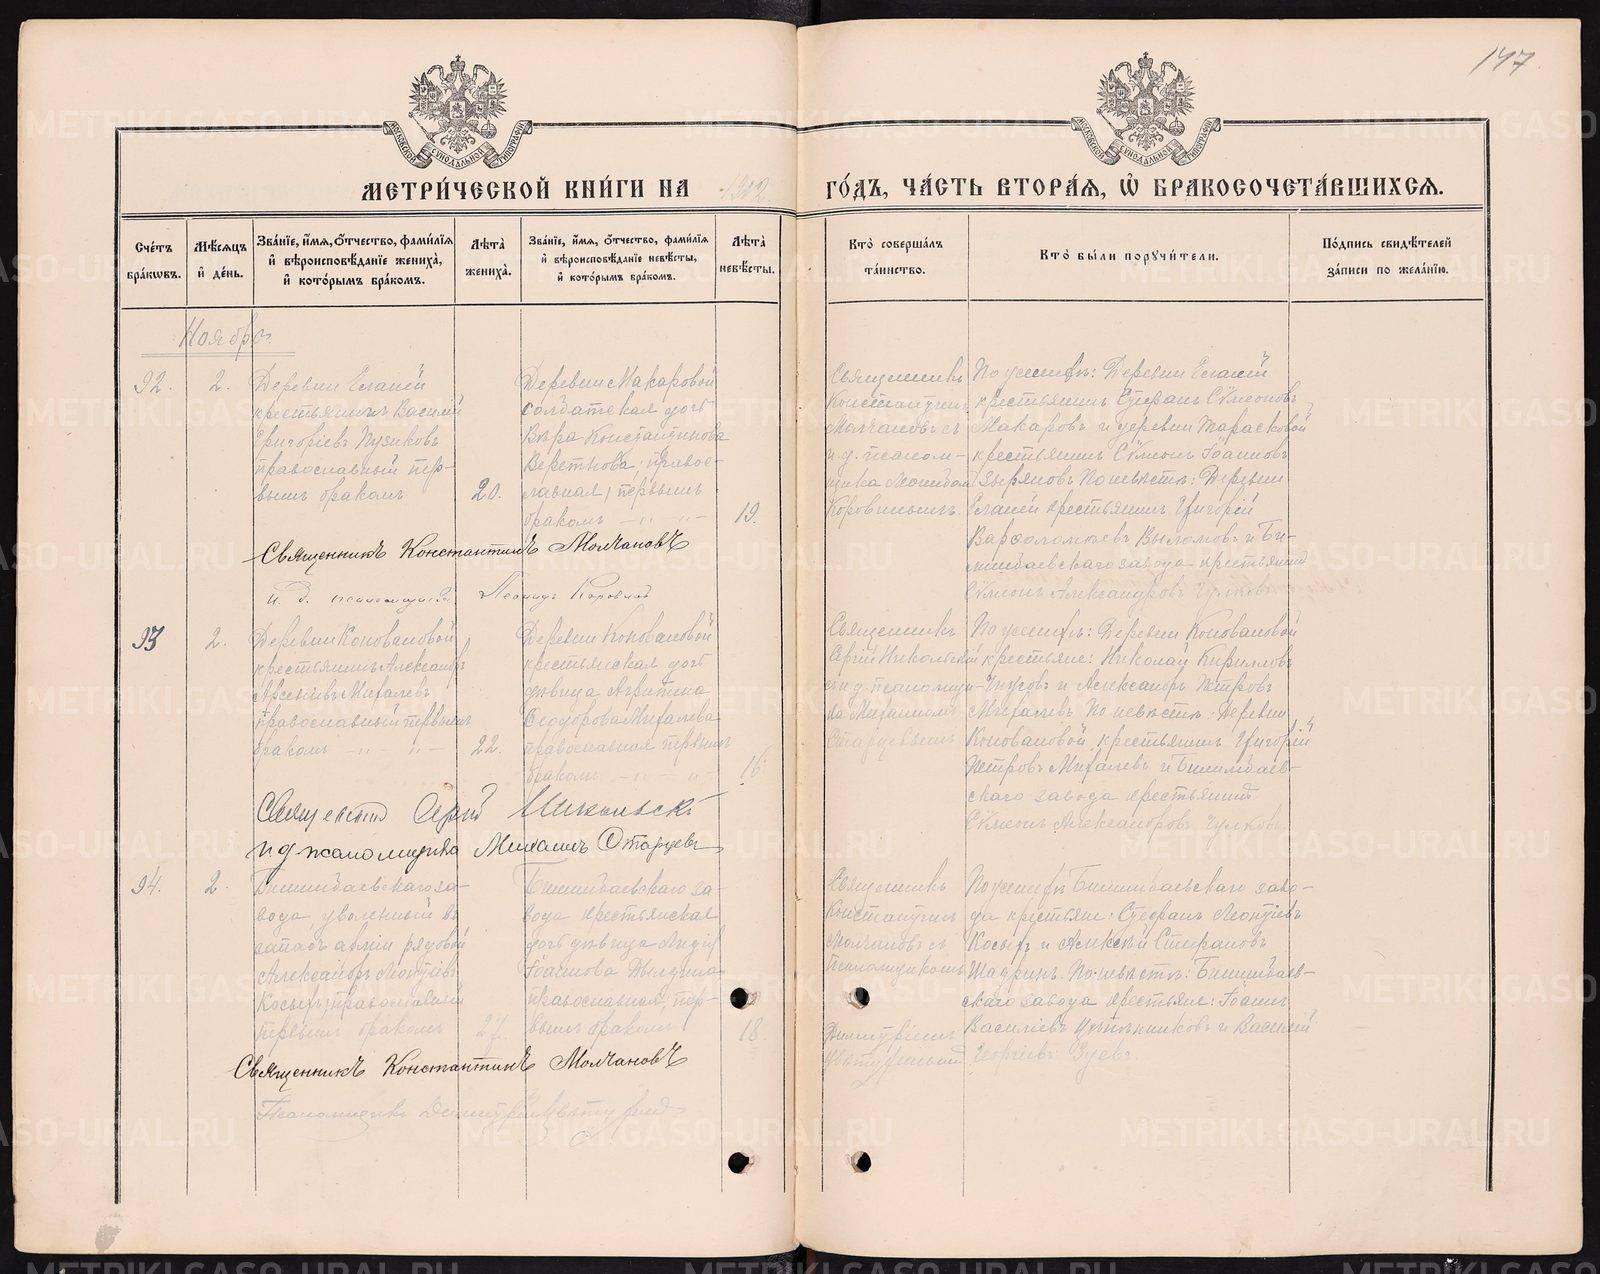 147
МЕТРИ́ЧЕСКОЙ КНИ́ГИ НА 1912
ГО́ДЪ, ЧА́СТЬ ВТОРА́Я, Ѡ҆ БРАКОСОЧЕТА́ВШИХСЯ.
Сче́тъ бра́кωвъ.
Мѣ́сяцъ и҆ де́нь.
Зва́нїе, и҆́мя, о҆́тчество, фами́лїя и҆ вѣроисповѣ́данїе жениха̀, и҆ кото́рымъ бра́комъ.
Лѣта̀ жениха̀.
Зва́нїе, и҆́мя, о҆́тчество, фами́лїя и҆ вѣроисповѣ́данїе невѣ́сты, и҆ кото́рымъ бра́комъ.
Лѣта̀ невѣ́сты.
Кто̀ соверша́лъ та́инство.
Кто̀ бы́ли поручи́тели.
По́дпись свидѣ́телей за́писи по жела́нїю.
Ноябрь
92.
2.
Деревни Еланей
крестьянинъ Василій
Григоріевъ Пузиковъ
православный пер-
вымъ бракомъ
20.
Деревни Макаровой
солдатская дочь
Вѣра Константинова
Веретнова, право-
славная, первымъ
бракомъ
19.
Священникъ
Константинъ
Молчановъ съ
и.д. псалом-
щика Леонидом
Коровинымъ.
По женихѣ: Деревни Еланей
крестьянинъ Стефанъ Сѵмеоновъ
Макаровъ и деревни Тарасковой
крестьянинъ Сѵмеонъ Іоанновъ
Зыряновъ По невѣстѣ: Деревни
Еланей крестьянинъ Григорій
Варфоломѣевъ Выломовъ и Би-
лимбаевскаго завода крестьянинъ
Сѵмеонъ Александровъ Чулковъ
Священникъ Константинъ Молчановъ
и. д. псаломщика Леонидъ Коровинъ
93
2.
Деревни Коноваловой
крестьянинъ Александръ
Арсеніевъ Михалевъ
православный первымъ
бракомъ
22.
Деревни Коноваловой
крестьянская дочь
дѣвица Агрипина
Ѳеодорова Михалева
православная первымъ
бракомъ
16.
Священникъ
Сергій Никольскій
съ и.д. псаломщи-
ка Михаиломъ
Старцевымъ
По женихѣ: Деревни Коноваловой
крестьяне: Николай Кирилловъ
и Александръ Петровъ
Михалевъ По невѣстѣ: Деревни
Коноваловой крестьянинъ Григорій
Петровъ Михалевъ и Билимбаев-
скаго завода крестьянинъ
Сѵмеонъ Александровъ Чулковъ.
Священникъ Сергій Никольскій
и д псаломщика Михаилъ Старцевъ
94.
2.
Билимбаевскаго за-
вода уволенный въ
запасъ арміи рядовой
Александръ Леонтіевъ
Косыхъ, православный
первымъ бракомъ
27.
Билимбаевскаго за-
вода крестьянская
дочь дѣвица Лидія
Іоаннова Дылдина
православная, пер-
вымъ бракомъ
18.
Священникъ
Константинъ
Молчановъ съ
псаломщикомъ
Димитріемъ
По женихѣ Билимбаевскаго заво-
да крестьяне: Стефанъ Леонтіевъ
Косыхъ и Алексѣй Стефановъ
Шадринъ. По невѣстѣ: Билимбаев-
скаго завода крестьяне: Іоаннъ
Василіевъ и Василій
Георгіевъ Зуевъ.
Священникъ Константинъ Молчановъ
Псаломщикъ Димитрій